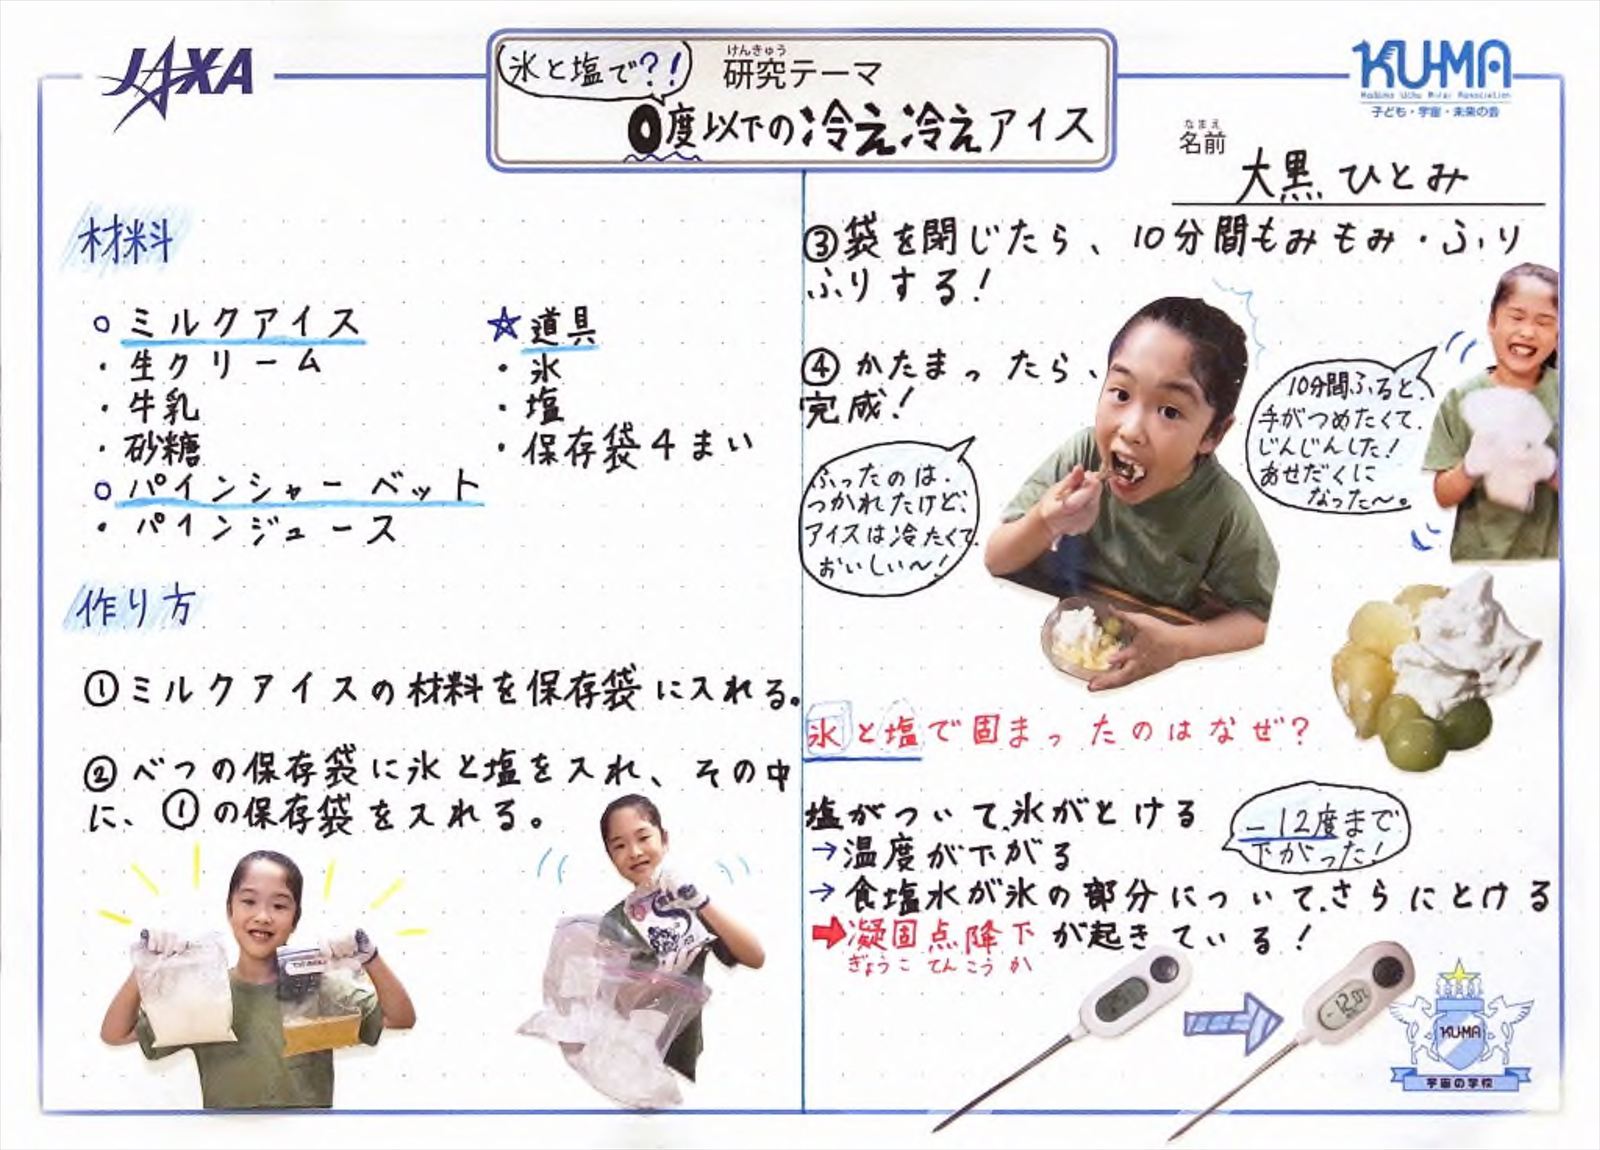 JAXA
氷と塩で?!
けんきゅう
研究テーマ
0度以下の冷え冷えアイス
KU-MA
子ども・宇宙・未来の会
なまえ
名前
大黒 ひとみ
材料
○ミルクアイス
・生クリーム
・牛乳
・砂糖
○パインシャーベット
・パインジュース
☆道具
・氷
・塩
・保存袋4まい
作り方
①ミルクアイスの材料を保存袋に入れる。
②べつの保存袋に氷と塩を入れ、その中
に、①の保存袋を入れる。
③袋を閉じたら、10分間もみもみ・ふり
ふりする!
④かたまったら、
完成!
ふったのは、
つかれたけど、
アイスは冷たくて、
おいしい〜!
10分間ふると、
手がつめたくて、
じんじんした!
あせだくに
なった〜。
氷と塩で固まったのはなぜ?
塩がついて、氷がとける
→温度が下がる
→食塩水が氷の部分について、さらにとける
➡凝固点降下が起きている!
ぎょうこてんこうか
-12度まで
下がった!
-12.0℃
KU-MA
宇宙の学校